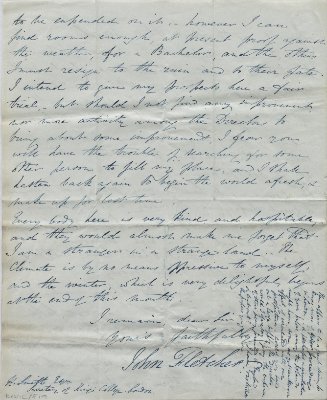 to be expended on it – however I can
find rooms enough at present proof against
the weather, for a Bachelor, and the others
I must resign to the ruin and to their fate.
I intend to give my prospects here a fair
trial, but should I not find any improvements
nor more activity among the Director to
bring about some improvement, I fear you
will have the trouble of searching for some
other person to fill my place, and I shall
hasten back again to begin the world afresh, &
make up for lost time.
Every body here is very kind and hospitable,
and they would almost make me forget that
I am a stranger in a strange land. The
Climate is by no means oppressive to myself
and the winter, which is very delightful, begins
at the end of this month.
I remain, dear Sir,
Yours faithfully
John Fletcher
H. Smith Esqr
Secretary of King's College London